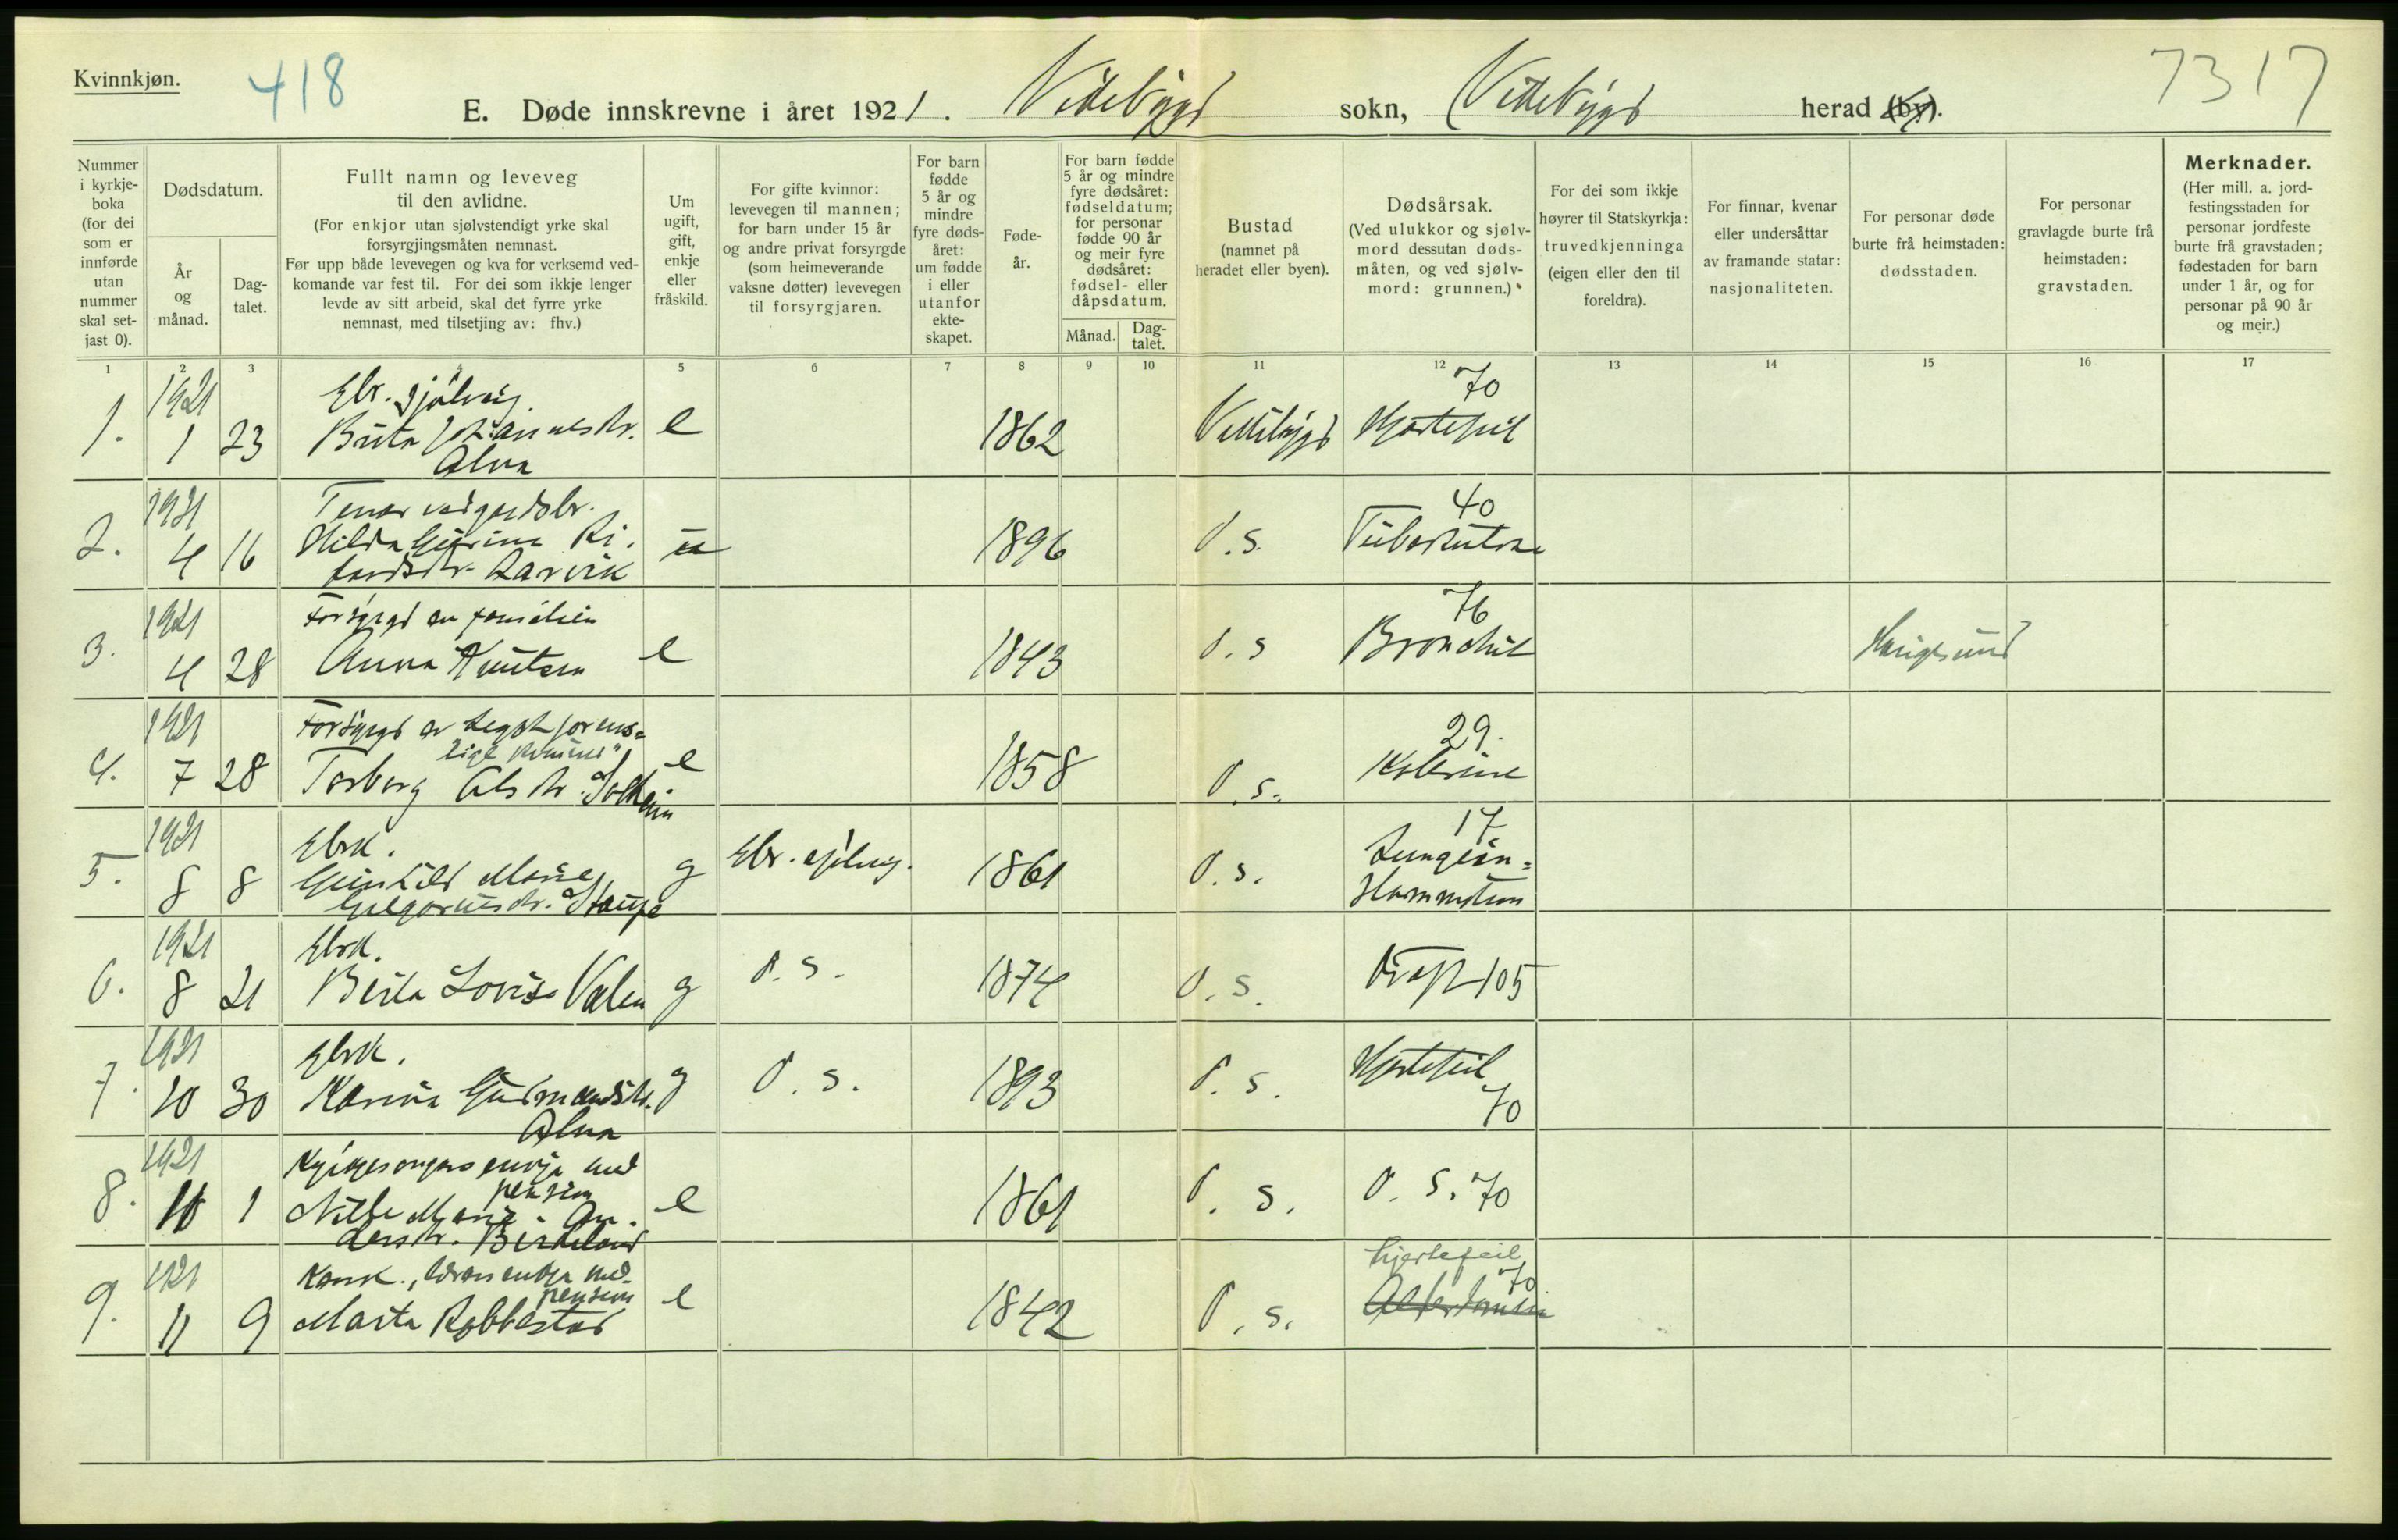 Kvinnkjøn.
418
7317
E. Døde innskrevne i året 1921. Vikebygd sokn, Vikebygd herad (by).
Nummer i kyrkje-boka (for dei som er innførde utan nummer skal set-jast 0).
Dødsdatum.
År og månad.
Dag-talet.
Fullt namn og leveveg til den avlidne.
(For enkjor utan sjølvstendigt yrke skal forsyrgjingsmåten nemnast.
Før upp både levevegen og kva for verksemd ved-komande var fest til. For dei som ikkje lenger levde av sitt arbeid, skal det fyrre yrke nemnast, med tilsetjing av: fhv.)
Um ugift, gift, enkje eller fråskild.
For gifte kvinnor: levevegen til mannen; for barn under 15 år og andre privat forsyrgde (som heimeverande vaksne døtter) levevegen til forsyrgjaren.
For barn fødde 5 år og mindre fyre døds-året: um fødde i eller utanfor ekte-skapet.
Føde-år.
For barn fødde 5 år og mindre fyre dødsåret: fødseldatum; for personar fødde 90 år og meir fyre dødsåret: fødsel- eller dåpsdatum.
Månad.
Dag-talet.
Bustad (namnet på heradet eller byen).
Dødsårsak.
(Ved ulukkor og sjølv-mord dessutan døds-måten, og ved sjølv-mord: grunnen.)
For dei som ikkje høyrer til Statskyrkja: truvedkjenninga (eigen eller den til foreldra).
For finnar, kvenar eller undersåttar av framande statar: nasjonaliteten.
For personar døde burte frå heimstaden: dødsstaden.
For personar gravlagde burte frå heimstaden: gravstaden.
Merknader.
(Her mill. a. jord-festingsstaden for personar jordfeste burte frå gravstaden; fødestaden for barn under 1 år, og for personar på 90 år og meir.)
1 2 3 4 5 6 7 8 9 10 11 12 13 14 15 16 17
1921 Gbr. sjölveig 70
1. 1 23 Brita Johannesdr. e 1862 Vikebygd Hjertefeil
Alna
1921 40
2. 4 16 Hilda u 1896 D.s. Tuberkulose
1921 Forsyrgd av familien 76
3. 4 28 Anna Knutsen e 1843 D.s Bronchit Haugesund
1921 Forsyrgd av 29.
4. 7 28 Torborg Olsdr. Solheim e 1858 D.s.
1921 Gbrk. 17.
5. 8 8 Gunhild Marie g Gbr. sjølveig. 1861 D.s. Lungein=
Staupe
1921 Gbrk.
6. 8 21 Berta Lovise Valen g D.s. 1874 D.s. 105
1921 Gbrk.
7. 10 30 Karina Gudmundsdr. g D.s. 1893 D.s. Hjertefeil
Alna 70
1921 Kyrkjesongars enkja med
pension
8. 10 1 Marie An- e 1861 D.s. D.s. 70
dersdr. Birkeland
1921 enkja med hjertefeil
pension 70
9. 11 9 Marta Robbestad e 1842 D.s.